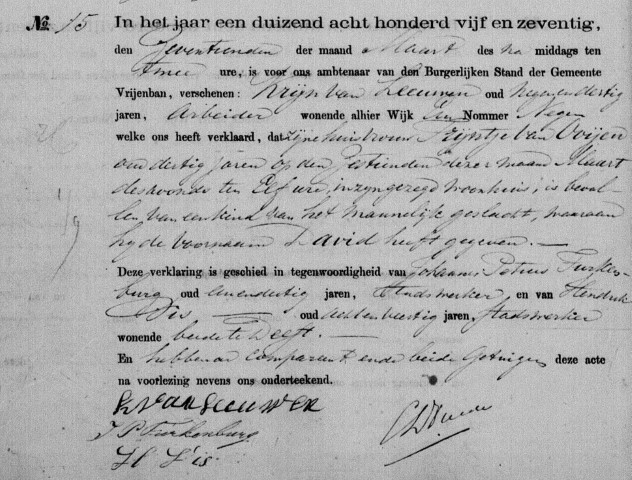 No. 15 In het jaar een duizend acht honderd vijf en zeventig,
den Zeventienden der maand Maart des na middags ten
Twee ure, is voor ons ambtenaar van den Burgerlijken Stand der Gemeente
Vrijenban, verschenen: Krijn van Leeuwen oud negenendertig
jaren, Arbeider wonende alhier Wijk Een Nommer Negen
welke ons heeft verklaard, dat zijne huisvrouw Krijntje van Ooijen
oud dertig jaren op den Zestienden dezer maand Maart
des avonds ten Elf ure, in zijn gezegd woonhuis, is beval-
len van een kind van het mannelijk geslacht, waaraan
hij de voornaam David heeft gegeven. —
Deze verklaring is geschied in tegenwoordigheid van Johannes Petrus Turken-
burg oud jaren, Stadswerker en van Hendrik
Dis — oud achtenveertig jaren, Stadswerker
wonende beide te Delft. —
En hebben de comparant ende beide Getuigen deze acte
na voorlezing nevens ons onderteekend.
K van Leeuwen
J P Turkenburg
H Dis